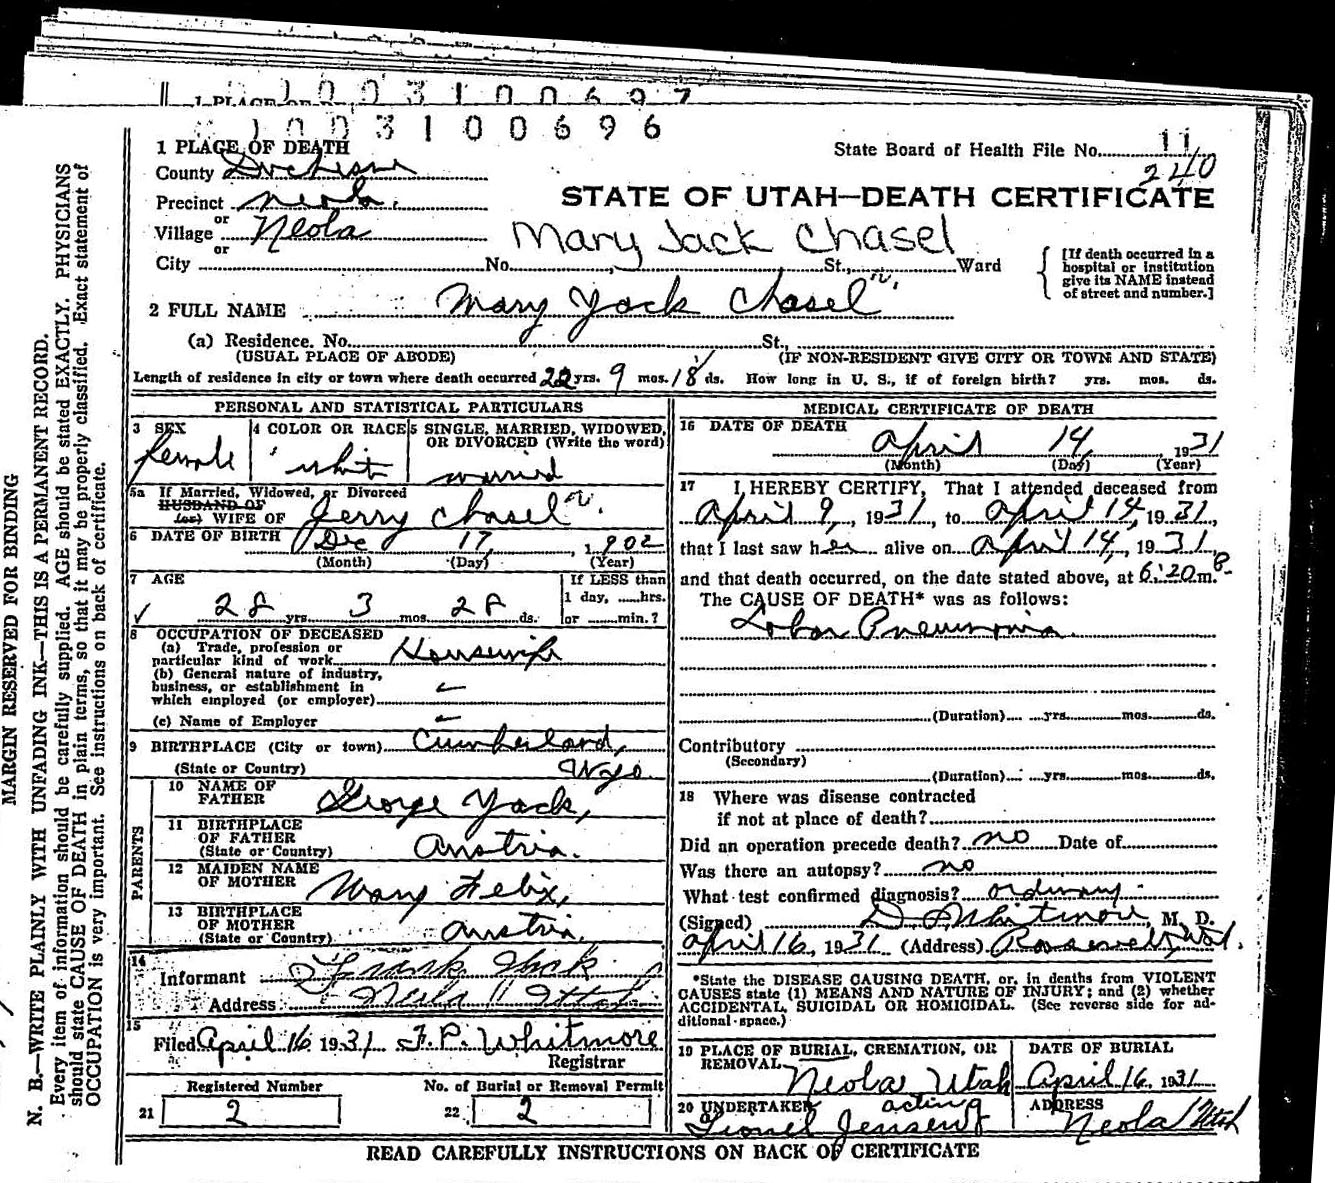 1 PLACE OF DEATH
1003100697
1003100696
1 PLACE OF DEATH
State Board of Health File No. 11
240
County Duchesne
STATE OF UTAH—DEATH CERTIFICATE
Precinct Neola.
or
Village Neola
Mary Jack Chasel
or
City No. St., Ward
[If death occurred in a
hospital or institution
give its NAME instead
of street and number.]
2 FULL NAME Mary Yack Chasel
(a) Residence. No. St.,
(USUAL PLACE OF ABODE) (IF NON-RESIDENT GIVE CITY OR TOWN AND STATE)
Length of residence in city or town where death occurred 22 yrs. 9 mos. 18 ds. How long in U. S., if of foreign birth? yrs. mos. ds.
PERSONAL AND STATISTICAL PARTICULARS
3 SEX
female
4 COLOR OR RACE
white
5 SINGLE, MARRIED, WIDOWED,
OR DIVORCED (Write the word)
married
5a If Married, Widowed, or Divorced
HUSBAND OF
(or) WIFE OF Jerry Chasel
6 DATE OF BIRTH Dec 17, 1902
(Month) (Day) (Year)
7 AGE
28 yrs. 3 mos. 28 ds.
If LESS than
1 day, hrs.
or min.?
8 OCCUPATION OF DECEASED
(a) Trade, profession or
particular kind of work Housewife
(b) General nature of industry,
business, or establishment in
which employed (or employer)
(c) Name of Employer
9 BIRTHPLACE (City or town) Cumberland,
(State or Country) Wyo.
PARENTS
10 NAME OF
FATHER George Yack,
11 BIRTHPLACE
OF FATHER
(State or Country) Austria.
12 MAIDEN NAME
OF MOTHER Mary Felix,
13 BIRTHPLACE
OF MOTHER
(State or Country) Austria.
14
Informant Frank Yack
Address Neola Utah
15
Filed April 16 1931 F. P. Whitmore
Registrar
Registered Number
21 2
No. of Burial or Removal Permit
22 2
MEDICAL CERTIFICATE OF DEATH
16 DATE OF DEATH
April 14, 1931
(Month) (Day) (Year)
17 I HEREBY CERTIFY, That I attended deceased from
April 9, 1931, to April 14, 1931,
that I last saw her alive on April 14, 1931
and that death occurred, on the date stated above, at 6:20 m. P.
The CAUSE OF DEATH* was as follows:
Lobar Pneumonia
(Duration) yrs. mos. ds.
Contributory
(Secondary)
(Duration) yrs. mos. ds.
18 Where was disease contracted
if not at place of death?
Did an operation precede death? no Date of
Was there an autopsy? no
What test confirmed diagnosis? ordinary
(Signed) Whitmore, M. D.
April 16, 1931 (Address) Roosevelt, Utah.
*State the DISEASE CAUSING DEATH, or, in deaths from VIOLENT
CAUSES state (1) MEANS AND NATURE OF INJURY; and (2) whether
ACCIDENTAL, SUICIDAL OR HOMICIDAL. (See reverse side for ad-
ditional space.)
19 PLACE OF BURIAL, CREMATION, OR
REMOVAL
Neola Utah
DATE OF BURIAL
April 16, 1931
20 UNDERTAKER acting
Lionel Jensen
ADDRESS
Neola Utah
READ CAREFULLY INSTRUCTIONS ON BACK OF CERTIFICATE
MARGIN RESERVED FOR BINDING
N. B.—WRITE PLAINLY WITH UNFADING INK—THIS IS A PERMANENT RECORD.
Every item of information should be carefully supplied. AGE should be stated EXACTLY. PHYSICIANS
should state CAUSE OF DEATH in plain terms, so that it may be properly classified. Exact statement of
OCCUPATION is very important. See instructions on back of certificate.